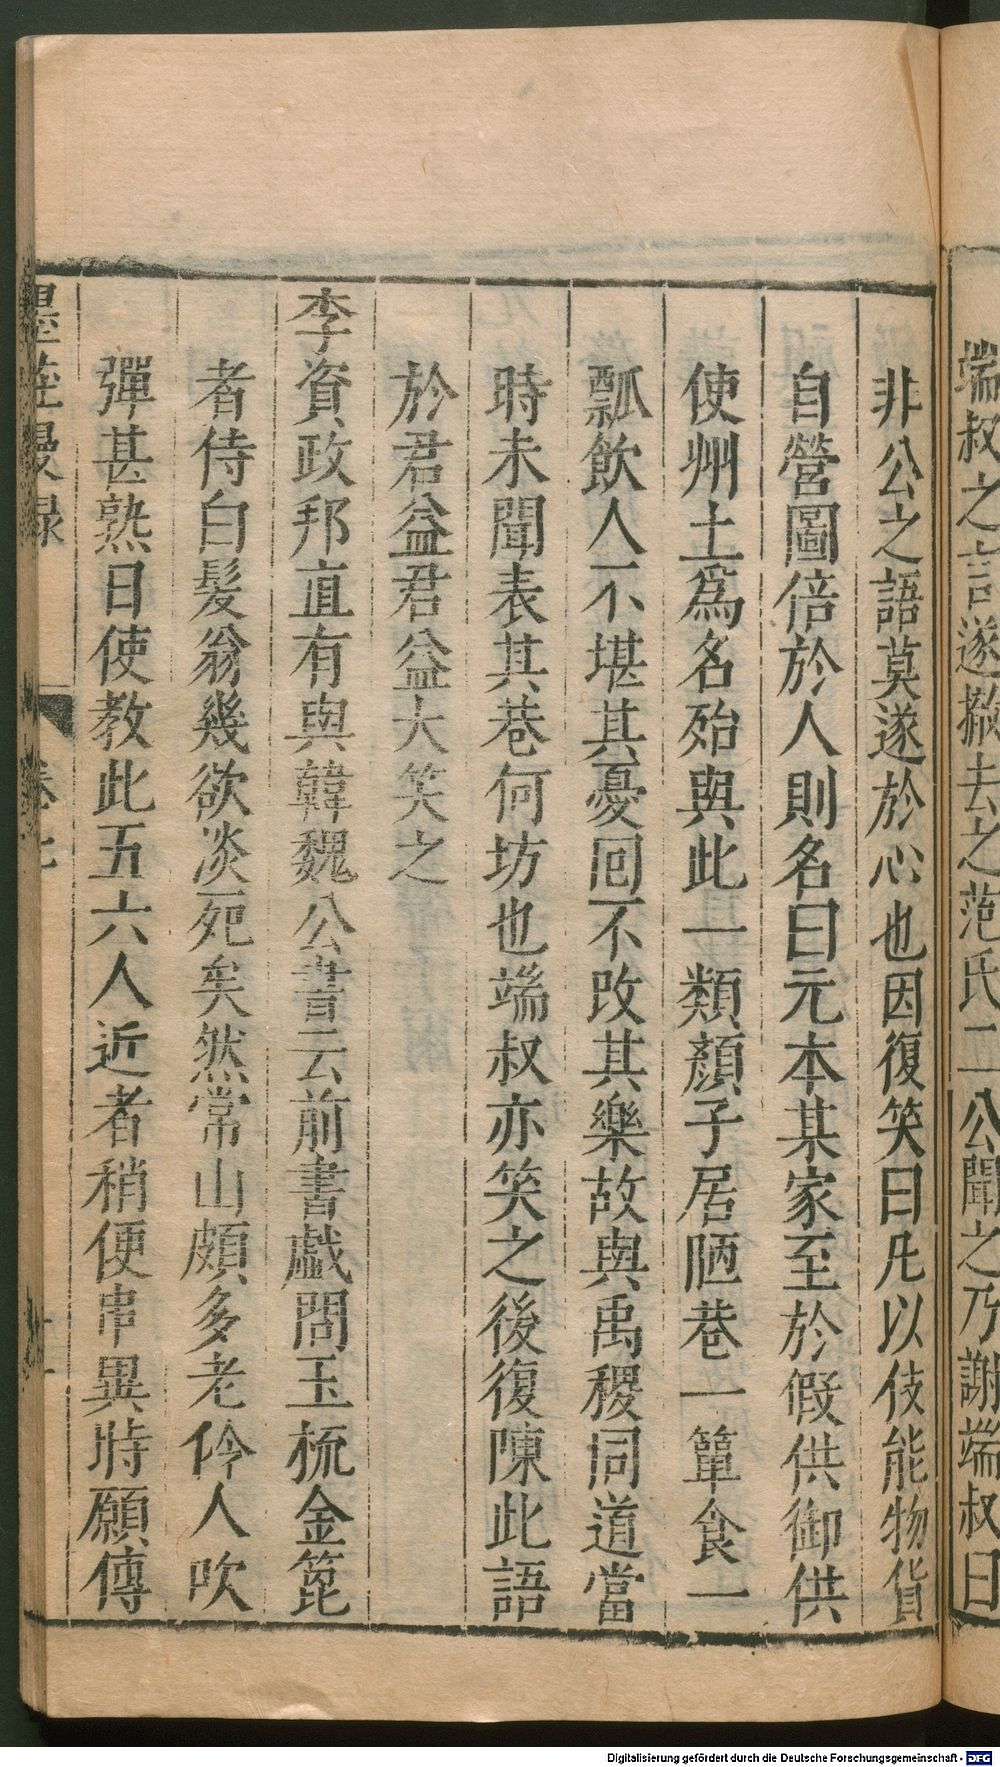 端叔之言遂撤去之范氏二公聞之乃謝端叔曰
非公之語莫遂於心也因復笑曰凡以伎能物貨
自營圖倍於人則名曰元本某家至於假供御供
使州土爲名殆與此一類顏子居陋巷一簞食一
瓢飲人不堪其憂囘不改其樂故與禹稷同道當
時未聞表其巷何坊也端叔亦笑之後復陳此語
於君益君益大笑之
李資政邦直有與韓魏公書云前書戲問玉梳金篦
者侍白髮翁幾欲淡死矣然常山頗多老伶人吹
彈甚熟日使教此五六人近者稍便串異時願傳
墨莊漫録 卷七 十一
Digitalisierung gefördert durch die Deutsche Forschungsgemeinschaft - DFG